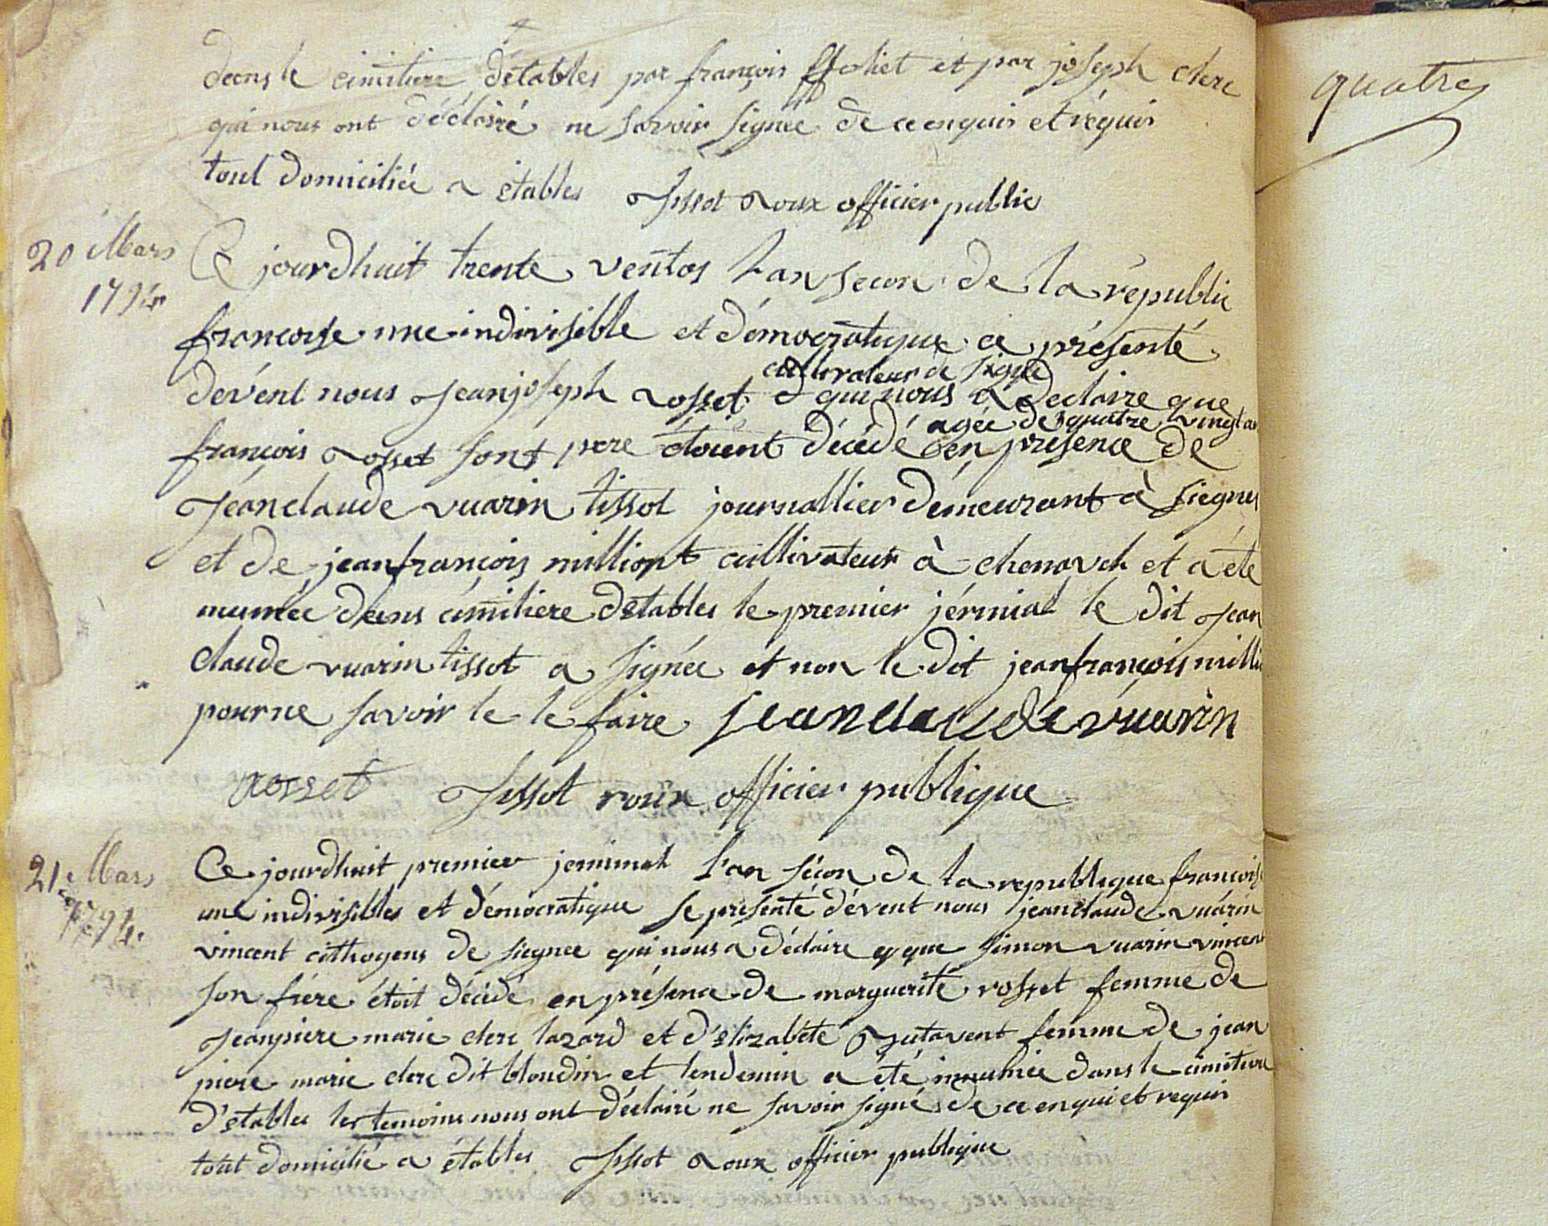 dans le cimitiere d'étables par françois ffolliet et par joseph clerc
qui nous ont déclairé ne savoir signée de ce enquis et réquis
tout domiciliée a étables Tissot Roux officier public
20 Mars
1794
Ce jourdhuit trente ventos l'an secon de la républic
francoise une indivisible et démocratique a présenté
dévent nous Jeanjoseph Rosset cultivateur de signe qui nous a declaire que
françois Rosset sont pere étoient décédé agée de quatre vingt an en présence de
Jeanclaude vuarin tissot journallier démeurant à siegnes
et de jeanfrançois milliont cultivateur à chenavel et a été
inumée dans cimitiere détables le premier jérminal le dit Jean
claude vuarin tissot a signée et non le dit jeanfrançois milli
pour ne savoir le le faire jean claude vuarin
rosset Tissot roux officier publique
21 Mars
1794.
Ce jourdhuit premier jerminal l'an sécon de la republique francoise
une indivisibles et démocratique se présenté dévent nous jeanclaude vuarin
vincent cithoyens de siegnee qui nous a déclaire que simon vuarin vincent
son frére étoit décédé en présence de marguerite rosset femme de
Jeanpiere marie clerc lazard et d'élizabéte femme de jean
piere marie clerc dit blondin et lendemin a été inumée dans le cimitiere
d'étables les temoins nous ont déclairé ne savoir signé de ce enqui et requis
tout domicilié a étables Tissot Roux officier publique
quatre